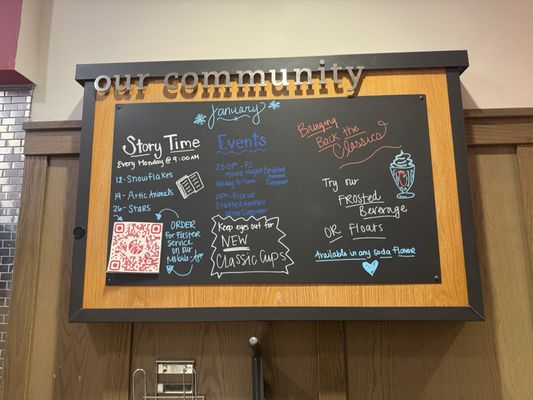 our community
January
Story Time
Every Monday @ 9:00 AM
12 - Snowflakes
19 - Artic Animals
26 - Stars
ORDER
For Faster
Service
on our
Mobile App
Events
23-24th - PJ
Movie Night/Stuffed
Animal
Sleepover
Friday 5-7pm
24th - Pick up
Stuffed Animals
After Sleepover
Keep eyes out for
NEW
Classic Cups
Bringing
Back the
Classics
Try our
Frosted
Beverage
OR Floats
Available in any soda Flavor